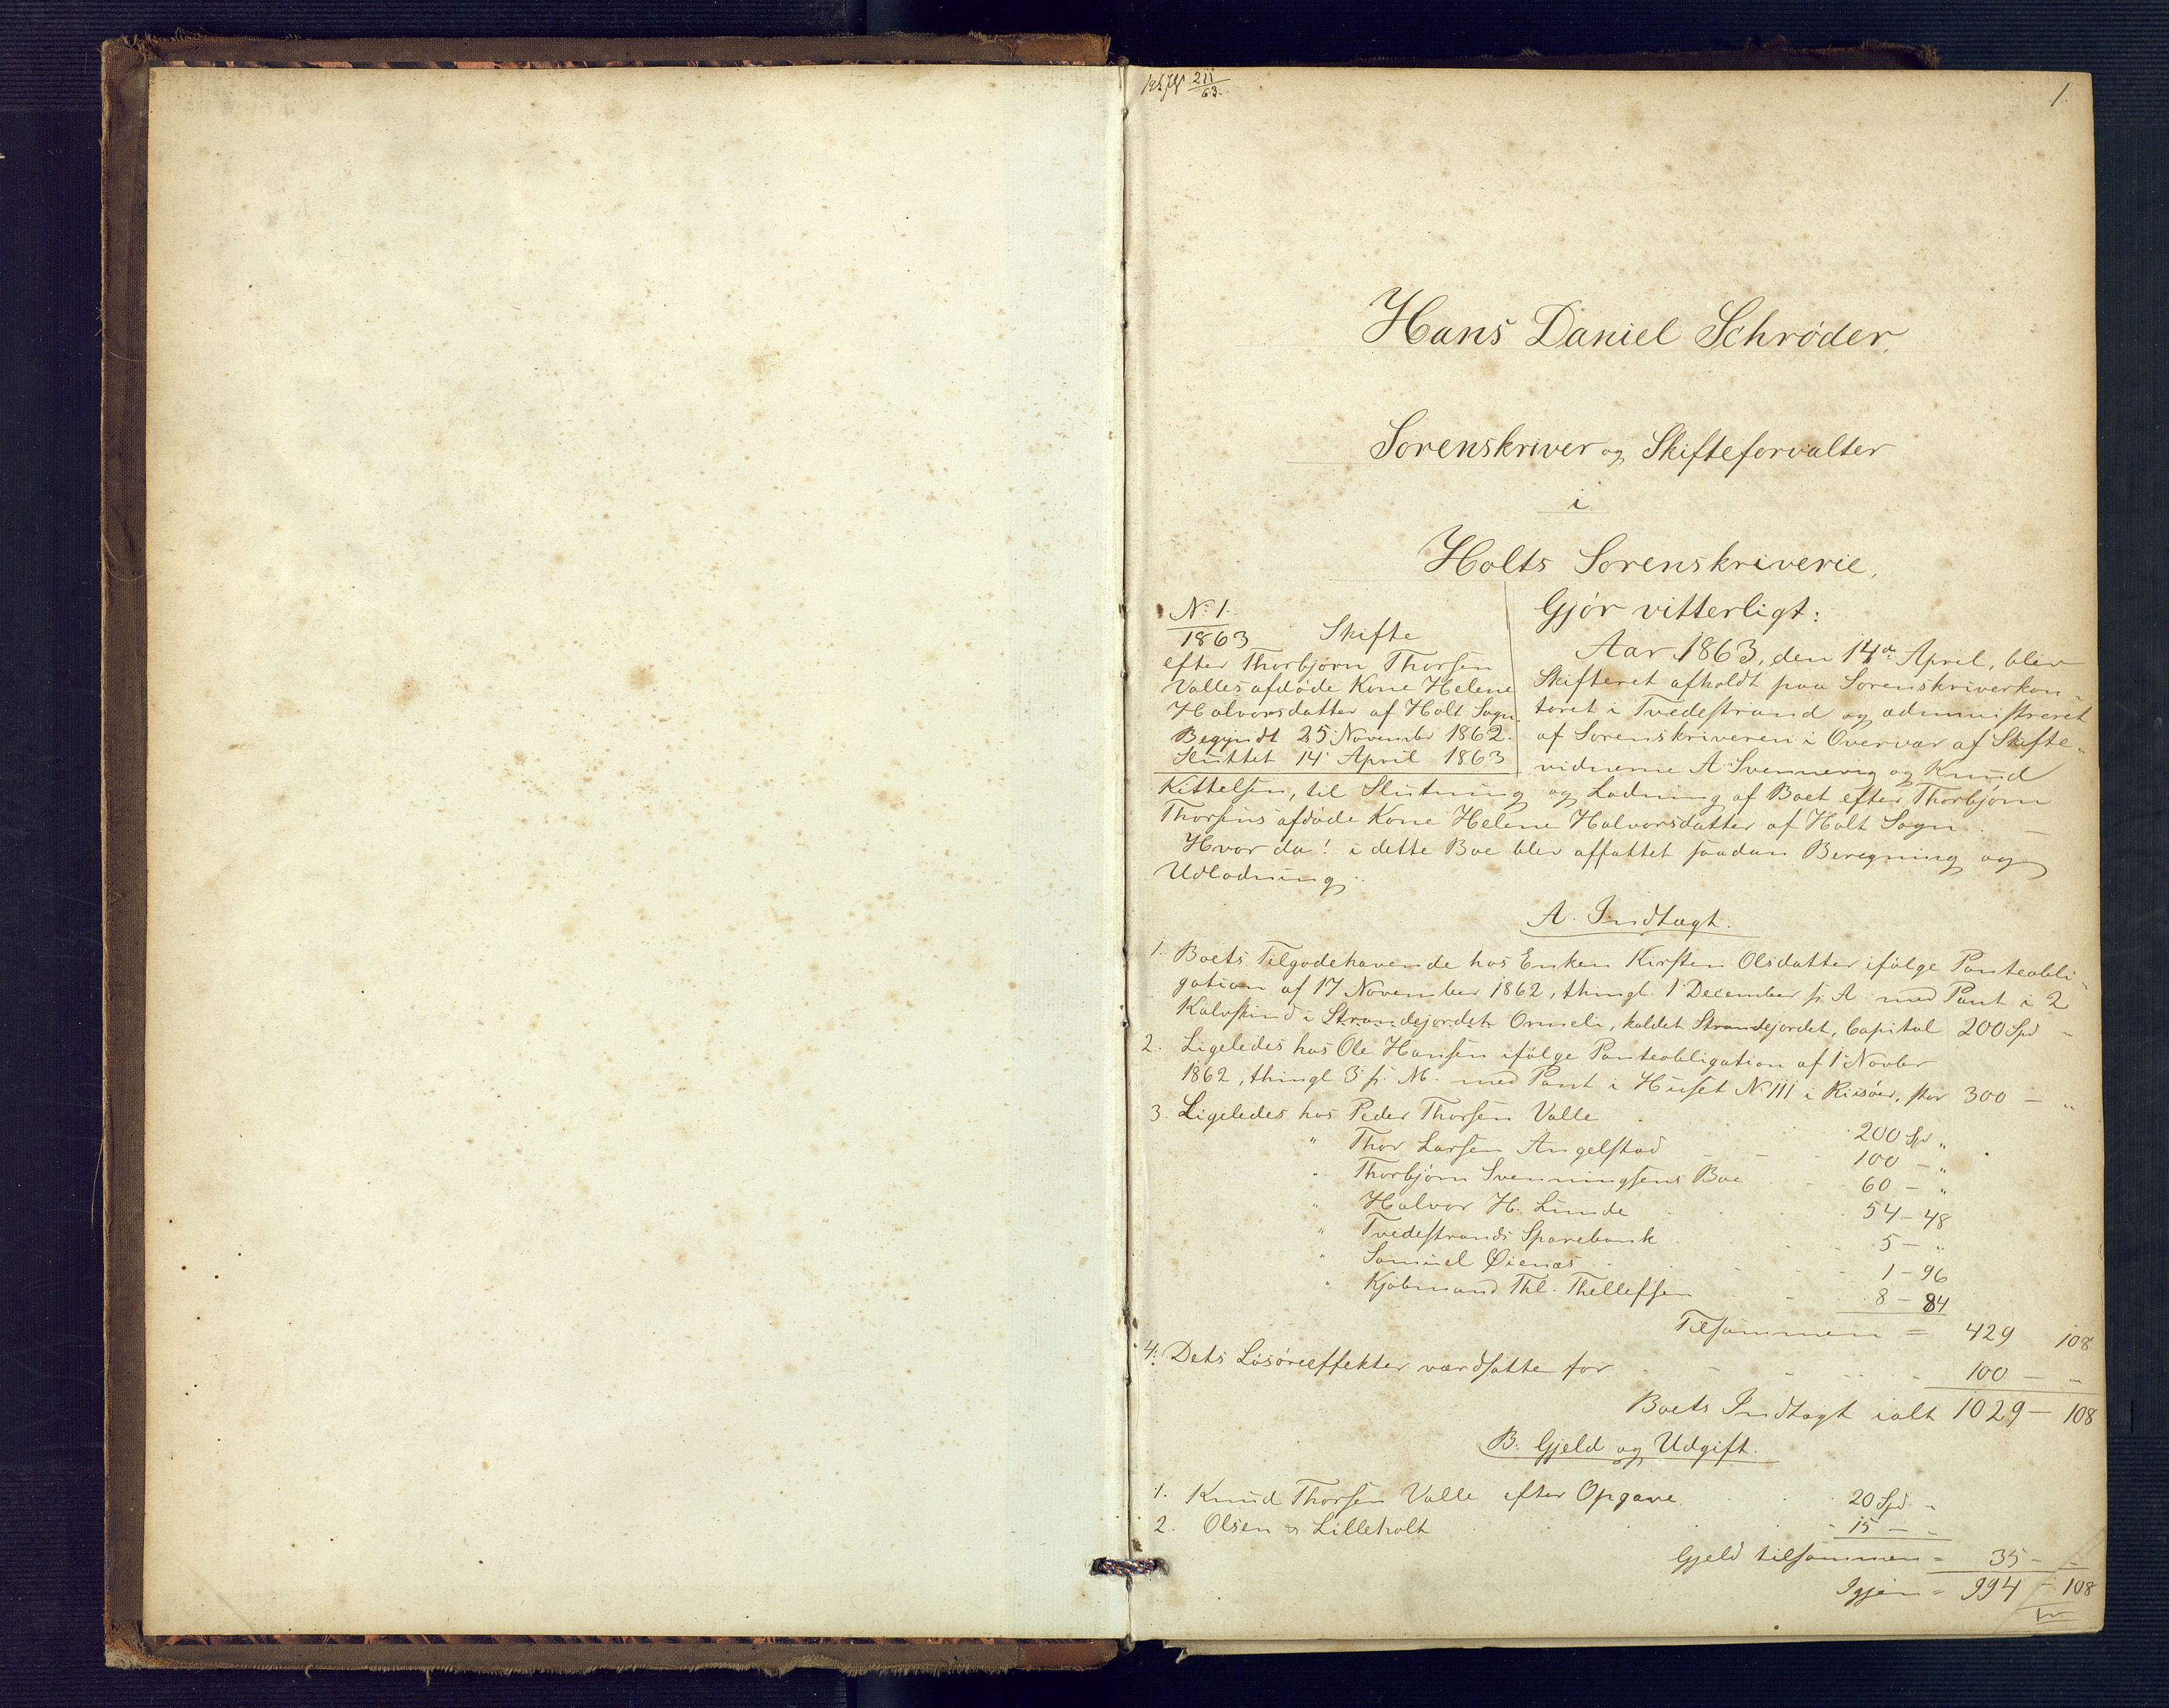 211
63.
1.
Hans Daniel Schrøder,
Sorenskriver og Skifteforvalter
i
Holts Sorenskriverie,
Gjør vitterligt:
No 1.
1863 Skifte
efter Thorbjørn Thorsen
Valles afdøde Kone Helene
Halvorsdatter af Holt Sogn.
Begyndt 25 November 1862.
Sluttet 14 April 1863
Aar 1863, den 14de April, blev
Skifteret afholdt paa Sorenskriverkon-
toret i Tvedestrand og administreret
af Sorenskriveren i Overvær af Skifte-
vidnerne A Svennevig og Knud
Kittelsen, til Slutning og Lodning af Boet efter Thorbjørn
Thorsens afdøde Kone Helene Halvorsdatter af Holt Sogn. —
Hvor da! i dette Boe blev affattet saadan Beregning og
Udlodning:
A. Indtægt.
1. Boets Tilgodehavende hos Enken Kirsten Olsdatter ifølge Panteobli-
gation af 17 November 1862, thingl. 1 December s. A. med Pant i 2
Kalvskind i Strandejordet Ormeli, kaldet Strandejordet, Capital 200 Spd "
2. Ligeledes hos Ole Hansen ifølge Panteobligation af 1 Novbr
1862, thingl 3 s. M. med Pant i Huset No 111 i Riisøer, stor 300 — "
3. Ligeledes hos Peder Thorsen Valle 200 Spd "
" Thor Larsen Angelstad 100 — "
" Thorbjørn Svenningsens Boe 60 — "
" Halvor H. Lunde 54 — 48
" Tvedestrands Sparebank 5 — "
" Samuel Øienæs 1 — 96
" Kjøbmand Thl. Thellefsen 8 — 84
Tilsammen = 429 108
4. Dets Løsøreeffekter værdsatte for 100 — "
Boets Indtægt ialt 1029 — 108
B. Gjeld og Udgift.
1. Knud Thorsen Valle efter Opgave 20 Spd "
2. Olsen & Lilleholt 15 — "
Gjeld tilsammen = 35 — "
Igjen = 994 — 108